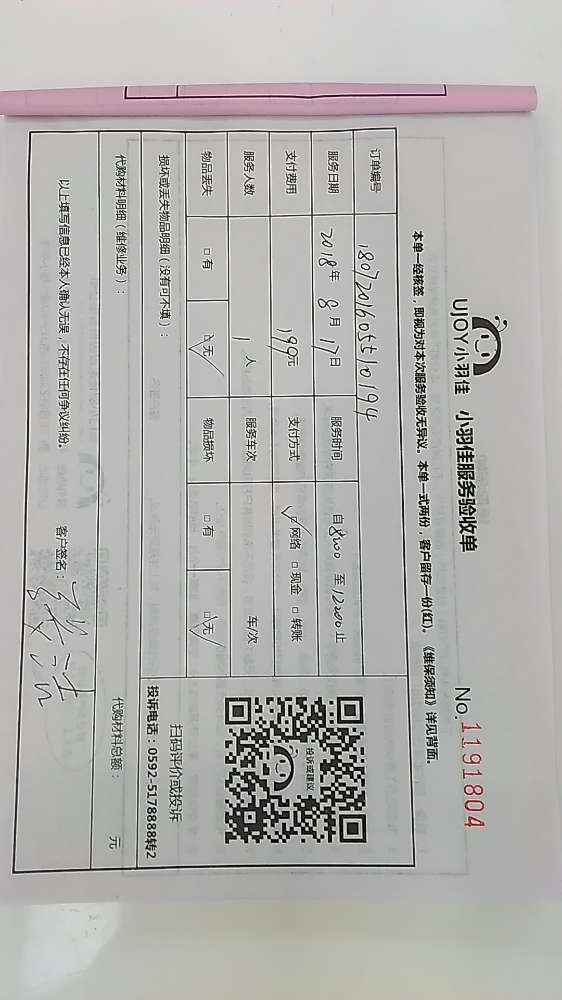 UJOY小羽佳 小羽佳服务验收单
No. 1191804
本单一经核签，即视为对本次服务验收无异议。本单一式两份，客户留存一份(红)。《维保须知》详见背面。
订单编号 1807201605510194
服务日期 2018年 8月 17日 服务时间 自 8:00 至 12:00 止
支付费用 199元 支付方式 ☑网络 □现金 □转账
服务人数 1人 服务车次 车/次
物品丢失 □有 ☑无 物品损坏 □有 ☑无
投诉或建议
扫码评价或投诉
投诉电话：0592-5178888转2
损坏或丢失物品明细（没有可不填）：
代购材料明细（维修业务）： 代购材料总额： 元
以上填写信息已经本人确认无误，不存在任何争议纠纷。 客户签名：